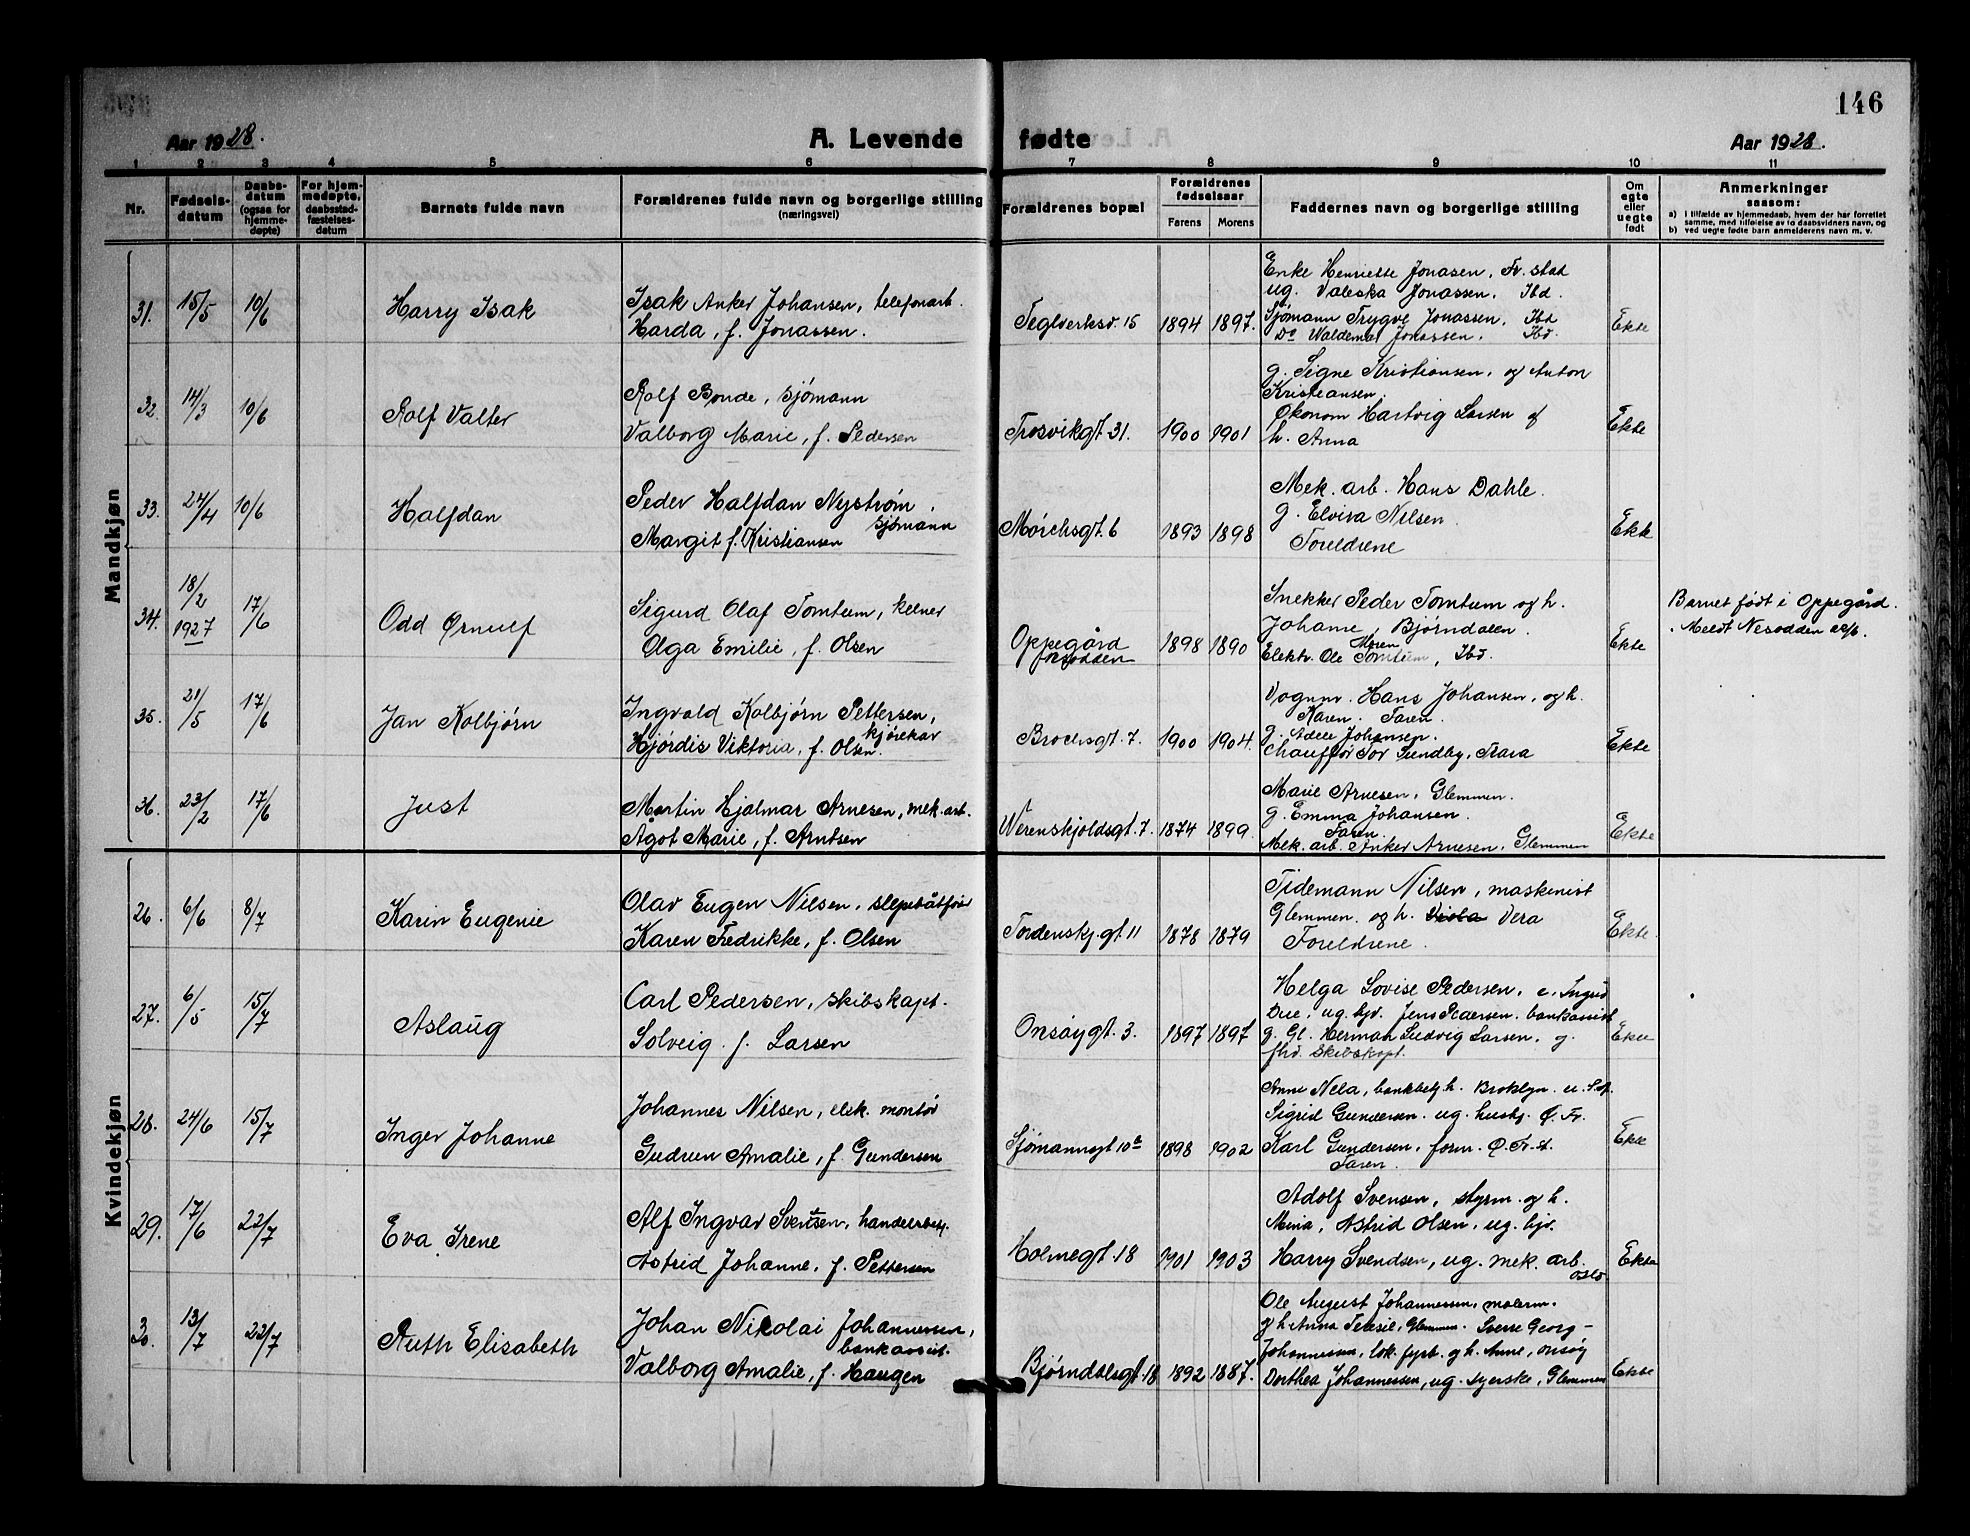 146
Aar 1928.
A. Levende
fødte
Aar 1928.
1 2 3 4 5 6 7 8 9 10 11
Nr.
Fødsels-
datum
Daabs-
datum
(ogsaa for
hjemme-
døpte)
For hjem-
medøpte,
daabsstad-
fæstelses-
datum
Barnets fulde navn
Forældrenes fulde navn og borgerlige stilling
(næringsvei)
Forældrenes bopæl
Forældrenes
fødselsaar
Farens Morens
Faddernes navn og borgerlige stilling
Om
egte
eller
uegte
født
Anmerkninger
saasom:
a) I tilfælde av hjemmedaab, hvem der har forrettet
samme, med tilføielse av to daabsvidners navn, og
b) ved uegte fødte barn anmelderens navn m. v.
Mandkjøn
31. 15/5 10/6
Harry Isak
Isak Anker Johansen, telefonarb.
Harda, f. Jonassen.
Teglverksv. 15 1894 1897.
Enke Henriette Jonasen, Fr.stad
ug. Valeska Jonassen. Ibd.
Sjømann Trygve Jonassen, Ibd
Do Waldemar Jonassen. Ibd.
Ekte
32. 14/3 10/6
Rolf Valter
Rolf Bonde, sjømann
Valborg Marie, f. Pedersen
Trosvikgt. 31. 1900 1901
g. Signe Kristiansen, og Anton
Kristiansen.
Økonom Hartvig Larsen og
h. Anna
Ekte
33. 24/4 10/6
Halfdan
Peder Halfdan Nystrøm,
sjømann
Margit f. Kristiansen
Mørchsgt. 6 1893 1898
Mek. arb. Hans Dahle.
g. Elvira Nilsen.
Foreldrene
Ekte
34. 18/2 1927 17/6
Odd Ørnulf
Sigurd Olaf Tomtum, kelner
Olga Emilie, f. Olsen
Oppegård
Nesodden
1898 1890
Snekker Peder Tomtum og h.
Johanne, Bjørndalen.
Moren
Elektr. Ole Tomtum, Ibd.
Ekte
Barnet født i Oppegård.
Meldt Nesodden
35. 21/5 17/6
Jan Kolbjørn
Ingvald Kolbjørn Pettersen,
kjørekar
Hjørdis Viktoria, f. Olsen.
Brochsgt. 7. 1900 1904.
Vognm. Hans Johansen, og h.
Karen. Faren.
g. Adele Johansen.
Chauffør Tor Sundby, Tara
Ekte
36. 23/2 17/6
Just
Martin Hjalmar Arnesen, mek. arb.
Ågot Marie, f. Arntsen
Werenskjoldsgt. 7. 1874 1899.
Marie Arnesen, Glemmen.
g. Emma Johansen.
Faren.
Mek. arb. Anker Arnesen, Glemmen
Ekte
Kvindekjøn
26. 6/6 8/7
Karin Eugenie
Olav Eugen Nilsen, slepebåtfører
Karen Fredrikke, f. Olsen
Tordenskj.gt 11 1878 1879
Tidemann Nilsen, maskinist
Glemmen. og h. Viola Vera
Foreldrene.
Ekte.
27. 6/5 15/7
Aslaug
Carl Pedersen, skibskapt.
Solveig. f. Larsen
Onsøygt. 3. 1897 1897
Helga Lovise Pedersen, e. Ingrid
Due, ug. hjv. Jens Pedersen. bankassist
g. Gl. Herman Ludvig Larsen. g.
fhv. Skibskapt.
Ekte
28. 24/6 15/7
Inger Johanne
Johannes Nilsen, elek. montør
Gudrun Amalie, f. Gundersen
Sjømannsgt 10a 1898 1902
Anne Nela, bankbetj h. Broklyn. U.S.A.
Sigrid Gundersen. ug. husbj. Ø. Fr.
Karl Gundersen, form. Ø. Fr. st.
Faren.
Ekte
29. 17/6 22/7
Eva Irene
Alf Ingvar Svensen, handelsbetj.
Astrid Johanne, f. Pettersen
Holmegt. 18 1901 1903
Adolf Svensen, styrm. og h.
Mina, Astrid Olsen, ug. hjv.
Harry Svendsen, ug. mek. arb.
Oslo
Ekte
30 13/7 22/7
Ruth Elisabeth
Johan Nikolai Johannessen,
bankassist.
Valborg Amalie, f. Haugen
Bjørndalsgt. 18 1892 1887.
Ole August Johannessen, malerm.
g h Anna Telesil, Glemmen. Sverre Georg-
Johannessen, lok. fyrb. og h. Anne, Onsøy
Dorthea Johannessen, ug. syerske, Glemmen
Ekte